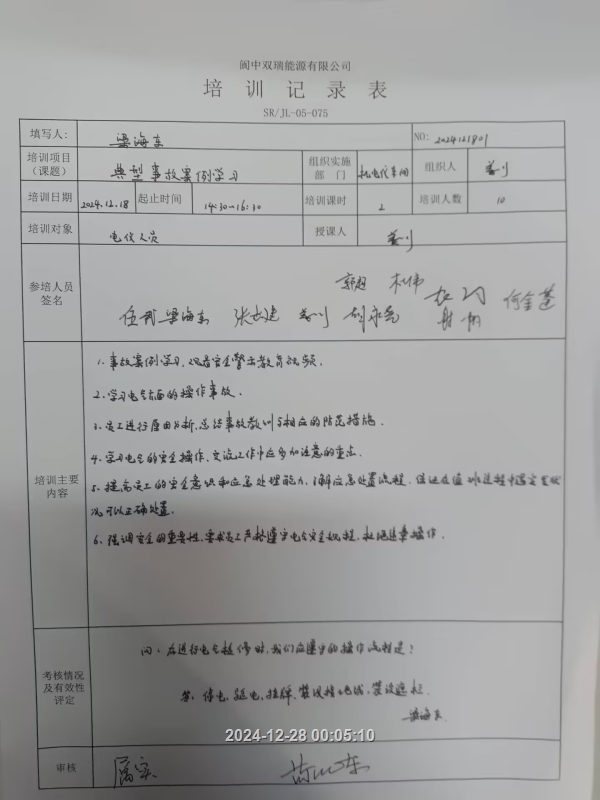 阆中双瑞能源有限公司
培训记录表
SR/JL-05-075
填写人: 梁海东 NO: 2024121801
培训项目（课题） 典型事故案例学习 组织实施部门 机电仪车间 组织人
培训日期 2024.12.18 起止时间 14:30-16:30 培训课时 2 培训人数 10
培训对象 电仪人员 授课人
参培人员签名
梁海东 何金蓬
培训主要内容
1、事故案例学习、观看安全警示教育视频。
2、学习电气方面的操作事故。
3、员工进行原因分析、总结事故教训与相应的防范措施。
4、学习电气的安全操作、交流工作中应多加注意的重点。
5、提高员工的安全意识和应急处理能力，了解应急处置流程，保证在值班过程中遇突发状
况可以正确处置。
6、强调安全的重要性，要求员工严格遵守电气安全规程，杜绝违章操作。
考核情况及有效性评定
问：在进行电气检修时，我们应遵守的操作流程是？
答：停电、验电、挂牌、装设接地线、装设遮栏。
梁海东
2024-12-28 00:05:10
审核 属实